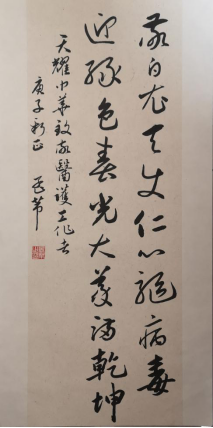 敬白衣天使仁心驅病毒
迎綠色春光大愛滿乾坤
天耀中華致敬醫護工作者
庚子新正